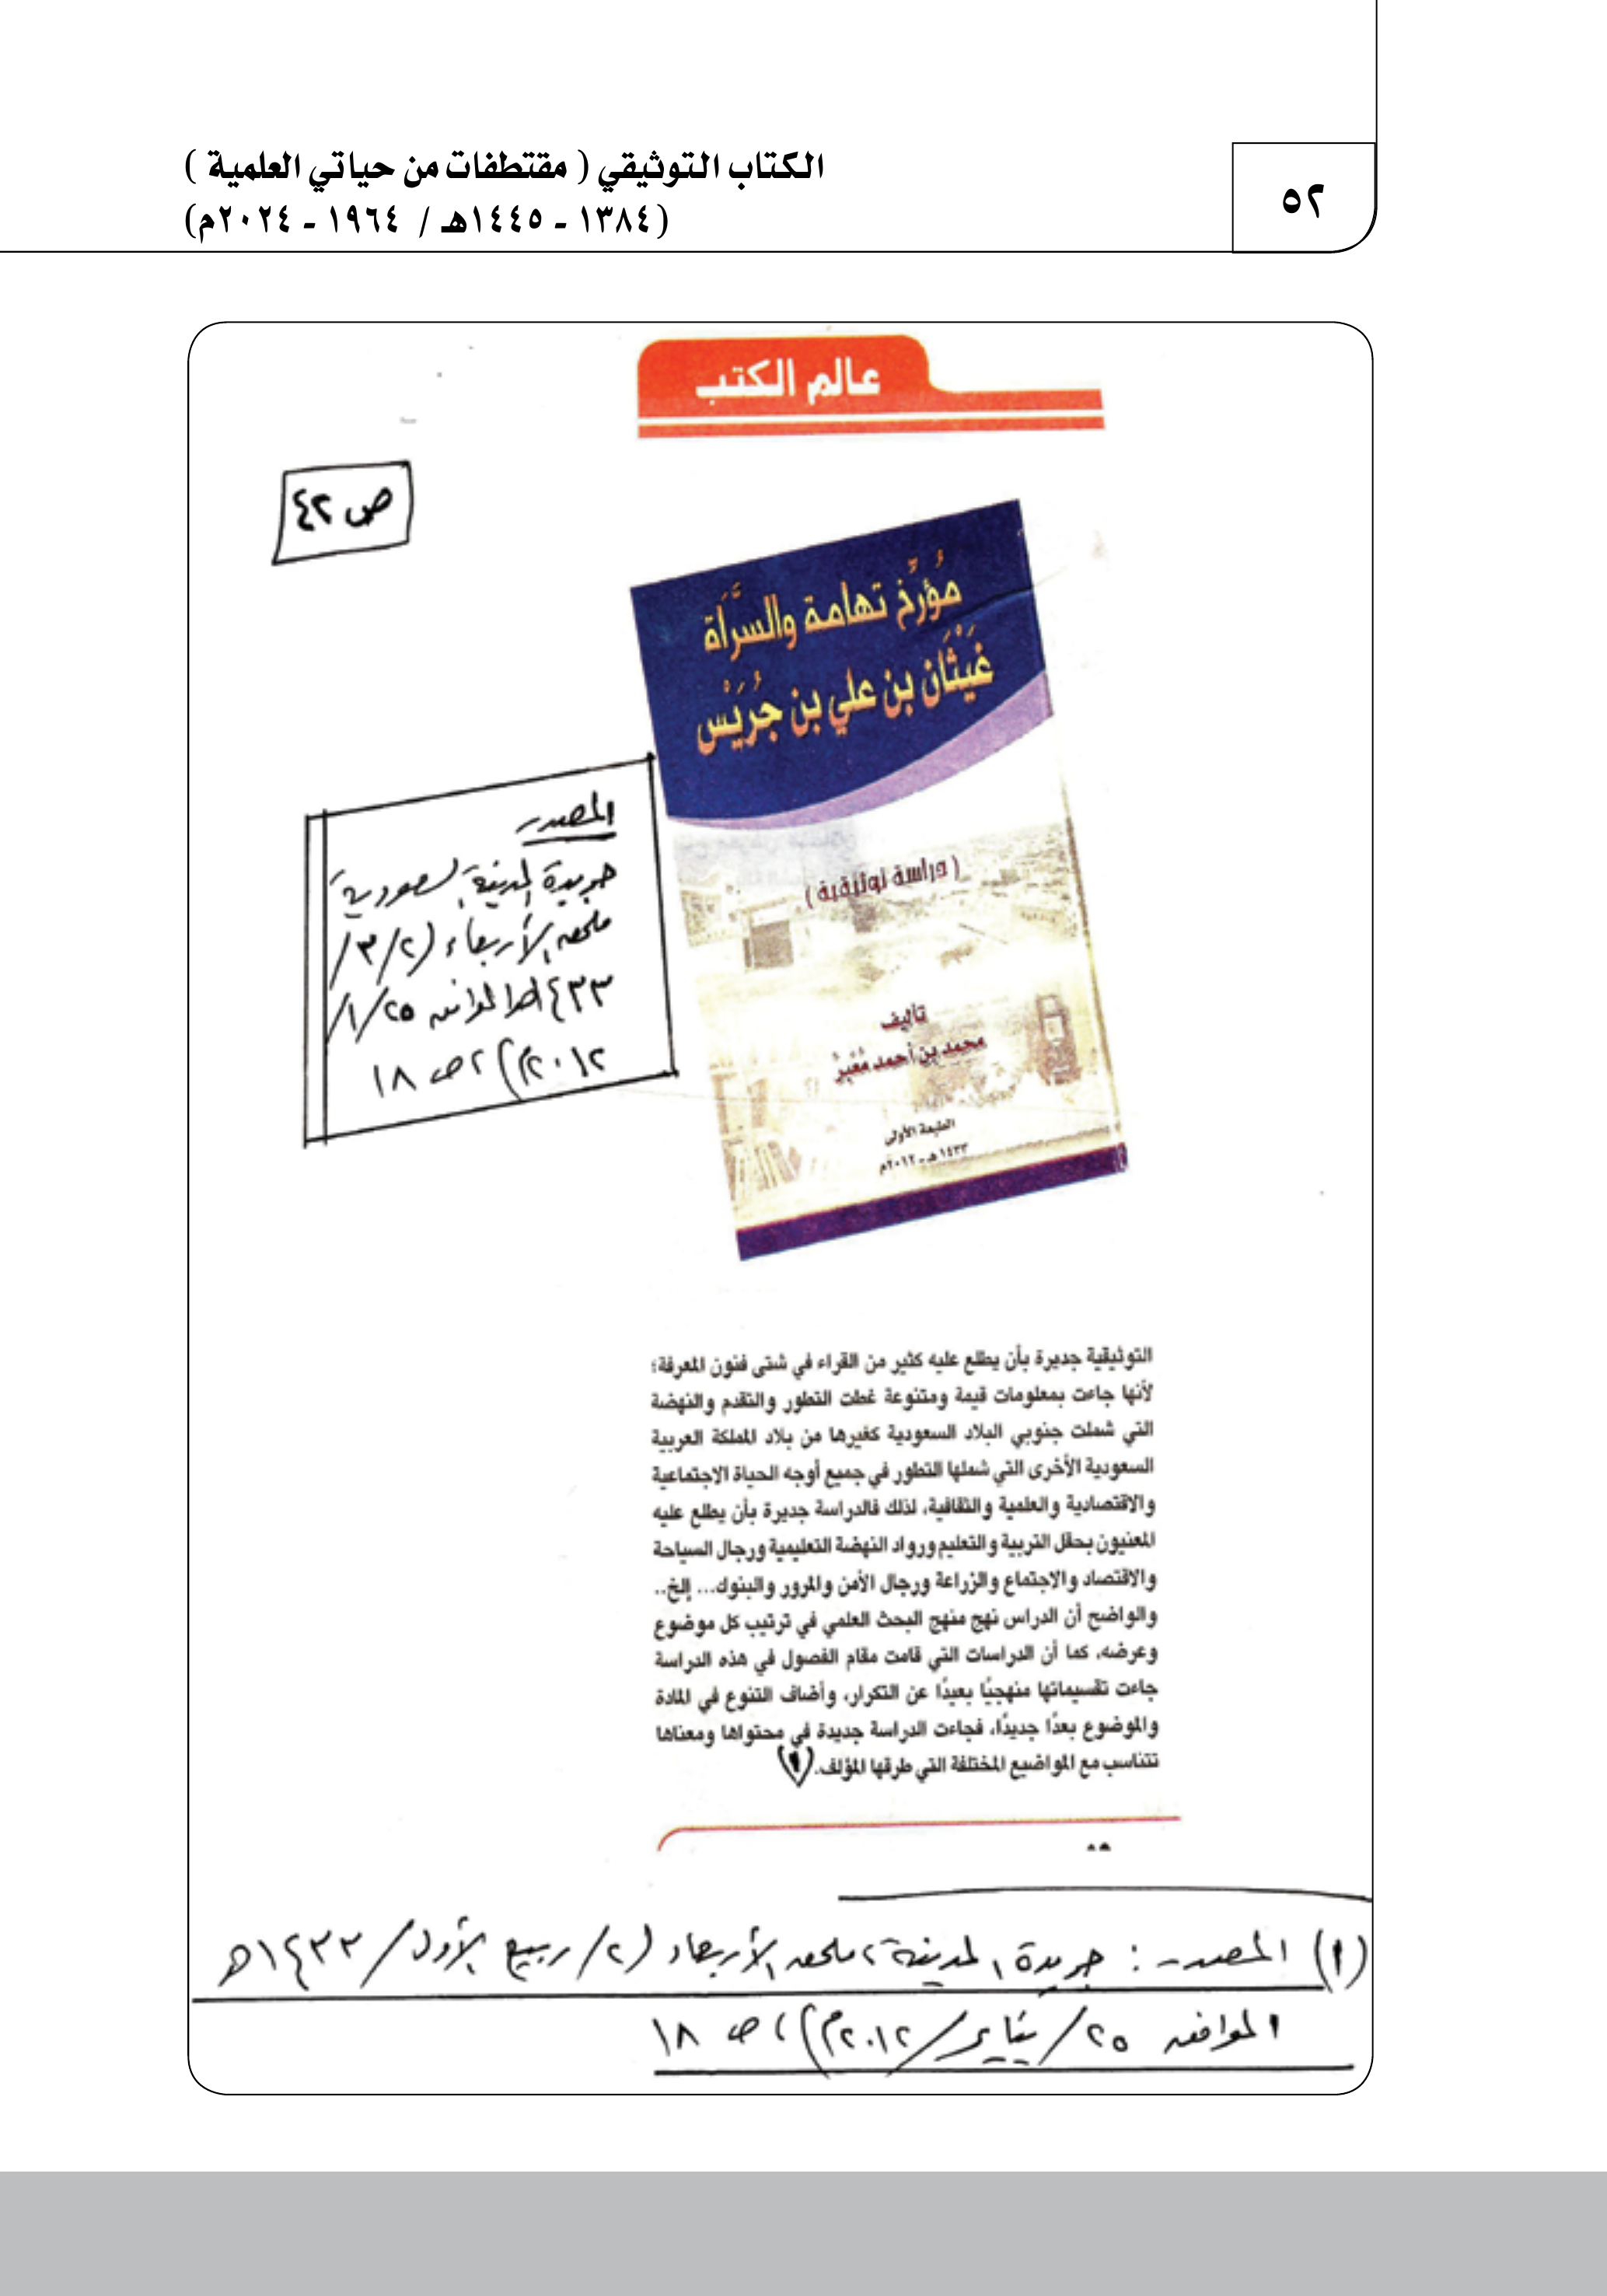 ٥٢
الكتاب التوثيقي ( مقتطفات من حياتي العلمية )
(١٣٨٤ - ١٤٤٥هـ / ١٩٦٤ - ٢٠٢٤م)
عالم الكتب
ص ٤٢
مُؤرِّخ تهامة والسَّراة
غَيْثَان بن علي بن جُرَيْس
( دراسة توثيقية )
تأليف
محمد بن أحمد مُعَبِّر
الطبعة الأولى
١٤٣٣هـ - ٢٠١٢م
المصدر
جريدة المدينة السعودية
ملحق الأربعاء (٢/٣/
١٤٣٣هـ الموافق ٢٥/١/
٢٠١٢م)، ص ١٨
التوثيقية جديرة بأن يطلع عليه كثير من القراء في شتى فنون المعرفة؛
لأنها جاءت بمعلومات قيمة ومتنوعة غطت التطور والتقدم والنهضة
التي شملت جنوبي البلاد السعودية كغيرها من بلاد المملكة العربية
السعودية الأخرى التي شملها التطور في جميع أوجه الحياة الاجتماعية
والاقتصادية والعلمية والثقافية، لذلك فالدراسة جديرة بأن يطلع عليه
المعنيون بحقل التربية والتعليم ورواد النهضة التعليمية ورجال السياحة
والاقتصاد والاجتماع والزراعة ورجال الأمن والمرور والبنوك... إلخ..
والواضح أن الدراس نهج منهج البحث العلمي في ترتيب كل موضوع
وعرضه، كما أن الدراسات التي قامت مقام الفصول في هذه الدراسة
جاءت تقسيماتها منهجيًا بعيدًا عن التكرار، وأضاف التنوع في المادة
والموضوع بعدًا جديدًا، فجاءت الدراسة جديدة في محتواها ومعناها
تتناسب مع المواضيع المختلفة التي طرقها المؤلف. (١)
(١) المصدر : جريدة المدينة، ملحق الأربعاء (٢/ ربيع الأول/ ١٤٣٣هـ
الموافق ٢٥/ يناير/ ٢٠١٢م)، ص ١٨